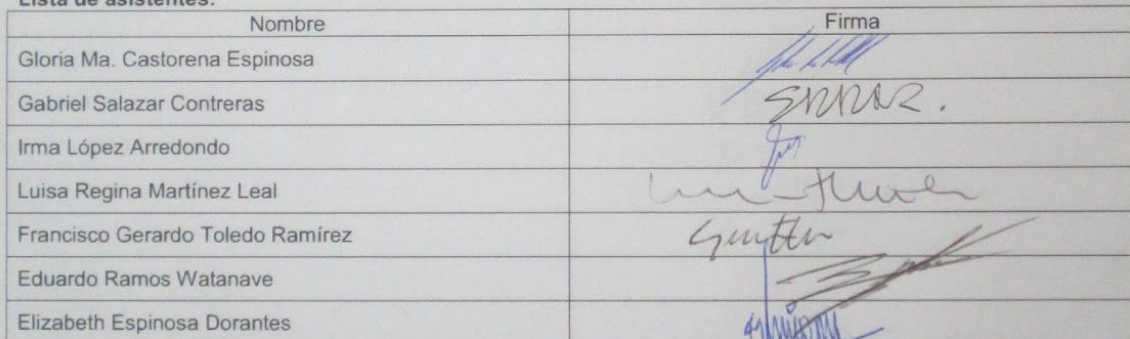 Lista de asistentes:
Nombre Firma
Gloria Ma. Castorena Espinosa
Gabriel Salazar Contreras
Irma López Arredondo
Luisa Regina Martínez Leal
Francisco Gerardo Toledo Ramírez
Eduardo Ramos Watanave
Elizabeth Espinosa Dorantes